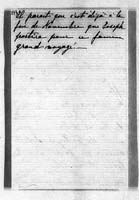 Il parait que c'est déjà à la
fin de Novembre que Joseph
partira pour ce fameux
grand voyage.